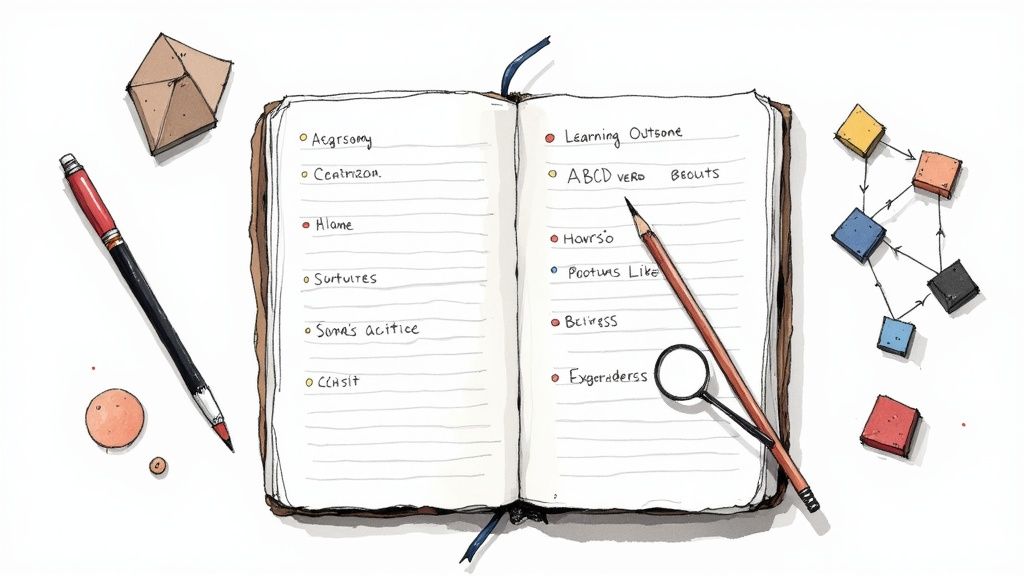 Aegrsomy
Centrizon.
Hlame
Surtures
Soma's acitice
CLHSIT
Learning Outsone
ABCD VERD BEOUTS
Hovrs'o
Pootwns Like
Exgerdderss